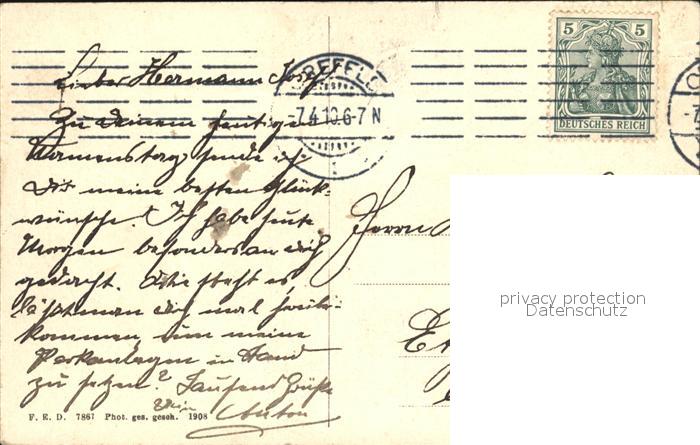 Lieber Hermann Josef!
Zu Deinem heutigen
Namenstag sende ich
Dir meine besten Glück-
wünsche! Ich habe heute
Morgen besonders an Dich
gedacht. Wie steht es,
läßt man Dich mal frei
kommen, um meine
Parkanlagen in Stand
zu setzen? Tausend Grüße
Dein Anton
F. E. D. 7867 Phot. ges. gesch. 1908
CREFELD
-7.4.10.6-7 N
5 5
DEUTSCHES REICH
Herrn
privacy protection
Datenschutz